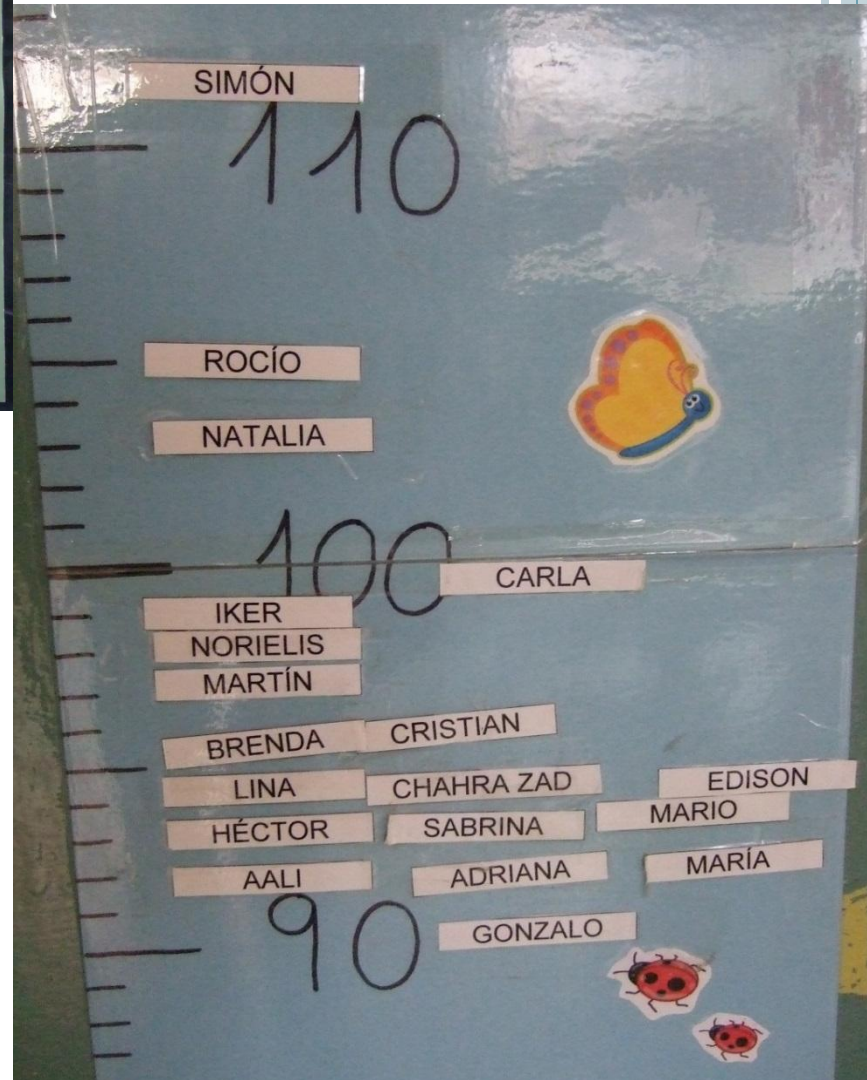 SIMÓN
110
ROCÍO
NATALIA
100
CARLA
IKER
NORIELIS
MARTÍN
BRENDA CRISTIAN
LINA CHAHRA ZAD EDISON
HÉCTOR SABRINA MARIO
AALI ADRIANA MARÍA
90 GONZALO